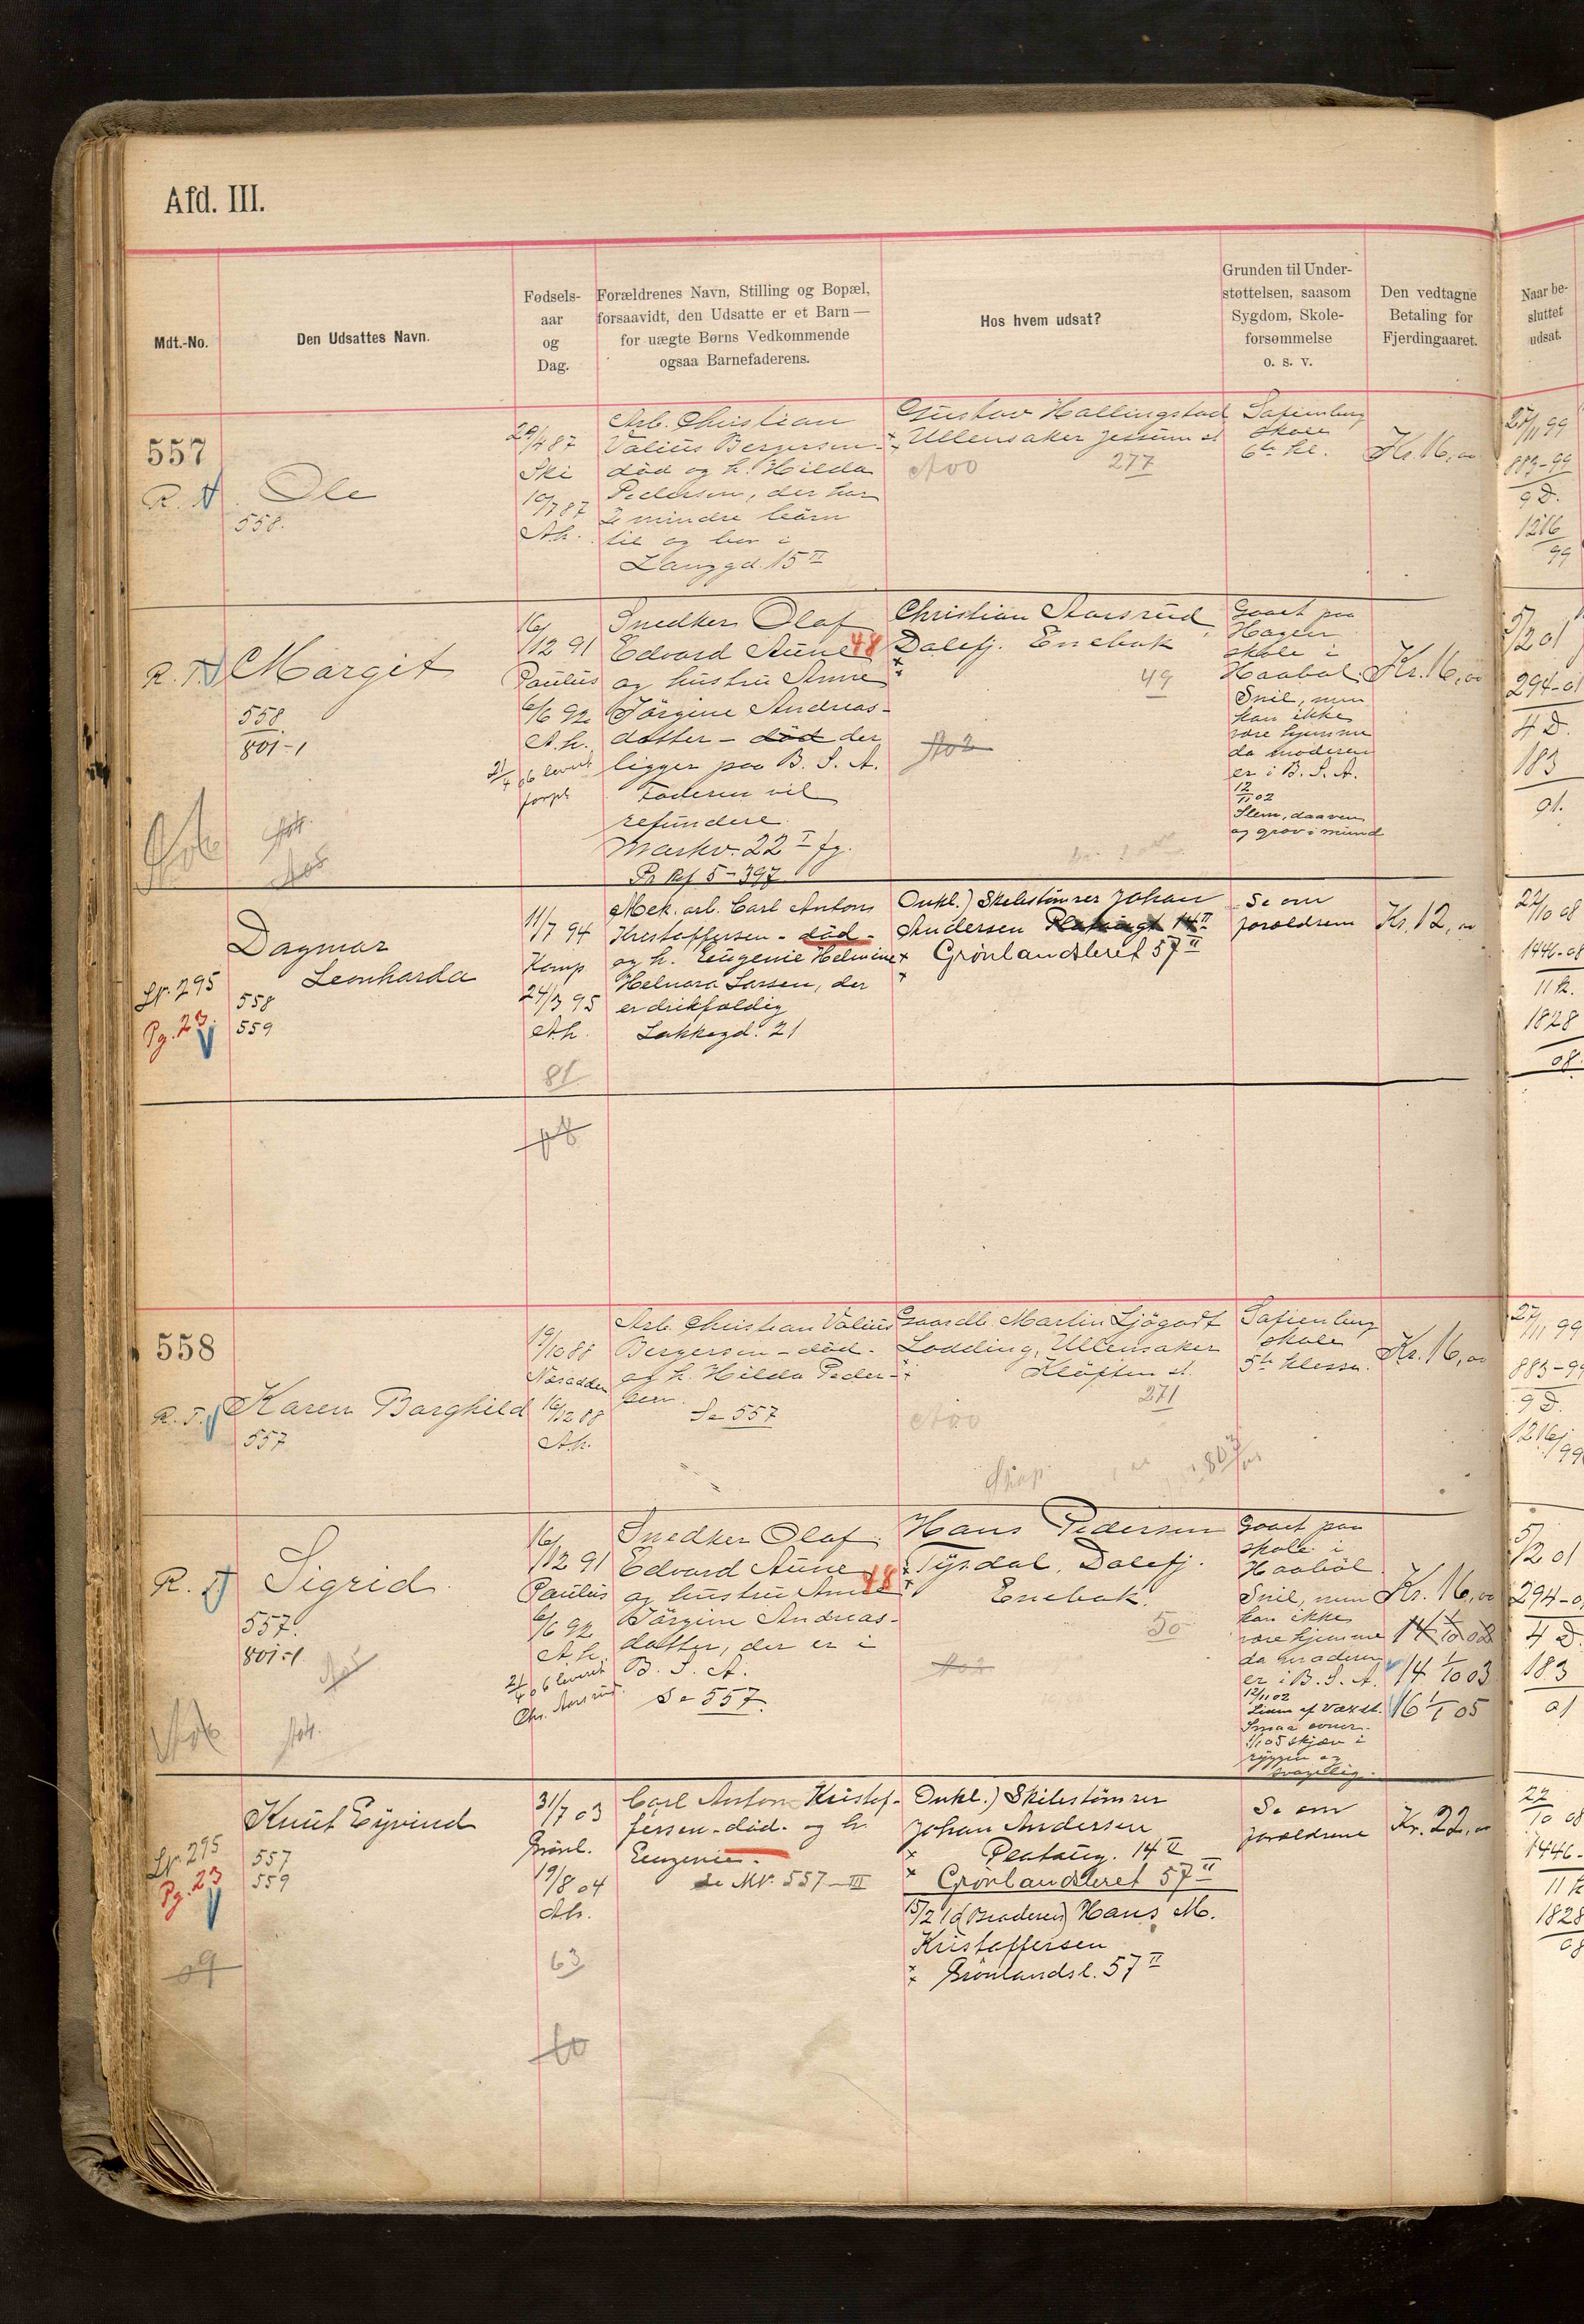 Afd. III.
Mdt.-No.
Den Udsattes Navn.
Fødsels-
aar
og
Dag.
Forældrenes Navn, Stilling og Bopæl,
forsaavidt, den Udsatte er et Barn —
for uægte Børns Vedkommende
ogsaa Barnefaderens.
Hos hvem udsat?
Grunden til Under-
støttelsen, saasom
Sygdom, Skole-
forsømmelse
o. s. v.
Den vedtagne
Betaling for
Fjerdingaaret.
Naar be-
sluttet
udsat.
557
R.
Ole
558.
29/4 87
Ski
10/7 87
A.h.
Arb. Christian
Valius Bergersen -
död og h. Hilda
Pedersen, der har
2 mindre börn
til og bor i
Langgd. 15 II
Gustav Hallingstad
Ullensaker Jessum st
277
Sapienburg
skole
6te kl.
Kr. 16,00
27/11 99
883-99
9 D.
1216
99
R. T.
Margit
558.
801-1
16/12 91
Paulus
6/6 92
A.h.
21/4 06 levert
forpl
Snedker Olaf
Edvard Aune 48
og hustru Anne
Jörgine Andreas-
datter - död der
ligger paa B. S. A.
Faderen vil
refundere.
Markv. 22 I fg.
Pr Rf 5-397
Christian Aarsrud,
Dalefj. Enebak
49
Gaaet paa
Hagen
skole i
Haabøl.
Snil, men
kan ikke
være hjemme
da moderen
er i B. S. A.
12/11 02
Slem, doven
og grov i mund
Kr. 16,00
5/2 01
294-01
4 D.
183
01.
Lp. 295
Pg. 23.
Dagmar
Leonharda
558
559
11/7 94
Kamp
24/3 95
A.h.
81
Mek. arb. Carl Antons
Kristoffersen - död -
og h. Eugenie Helmine
Helnora Larsen, der
er drikfældig
Lakkegd. 21
Onkl.) Skibstømrer Johan
Andersen Platougt 14 II
Grønlandsleret 57 II
Se om
forældrene
Kr. 12,00
22/10 08
1446-08
11 k.
1828
08.
558
R. T.
Karen Borghild
557
19/10 88
Næsodden
16/12 88
A.h.
Arb. Christian Valius
Bergersen - död -
og h. Hilda Peder-
sen.
Se 557
Gaardb. Martin Sjögart
Lodding, Ullensaker
Kløften st.
271
Sapienburg
skole
5te klasse.
Kr. 16,00
27/11 99
883-99
9 D.
1216/99
R. T.
Sigrid
557.
801-1
16/12 91
Paulus
6/6 92
A.h.
21/4 06 levert
Chr. Aarsrud.
Snedker Olaf
Edvard Aune 48
og hustru Anne
Jörgine Andreas-
datter, der er i
B. S. A.
Se 557.
Hans Pedersen
Tysdal, Dalefj.
Enebak.
50
Gaaet paa
skole i
Haabøl
Snil, men
kan ikke
være hjemme
da moderen
er i B. S. A.
12/11 02
Liden af væxt.
Smaa evner.
1/1 05 skjæv i
ryggen og
svagelig.
Kr. 16,00
14 1/10 02
14 1/10 03
16 1/1 05
5/2 01
294-01
4 D.
183
01
Lp. 295
Pg. 23
Knut Eyvind
557
559
31/7 03
Grönl.
19/8 04
A.h.
63
Carl Anton Kristof-
fersen - död - og h.
Eugenie.
Se M.N. 557-III
Onkl.) Skibstømrer
Johan Andersen
Platoug. 14 II
Grønlandsleret 57 II
15/2 10 (Broderen) Hans M.
Kristoffersen
Grönlandsl. 57 II
Se om
forældrene
Kr. 22,00
22/10 08
1446-
11 k
1828
08